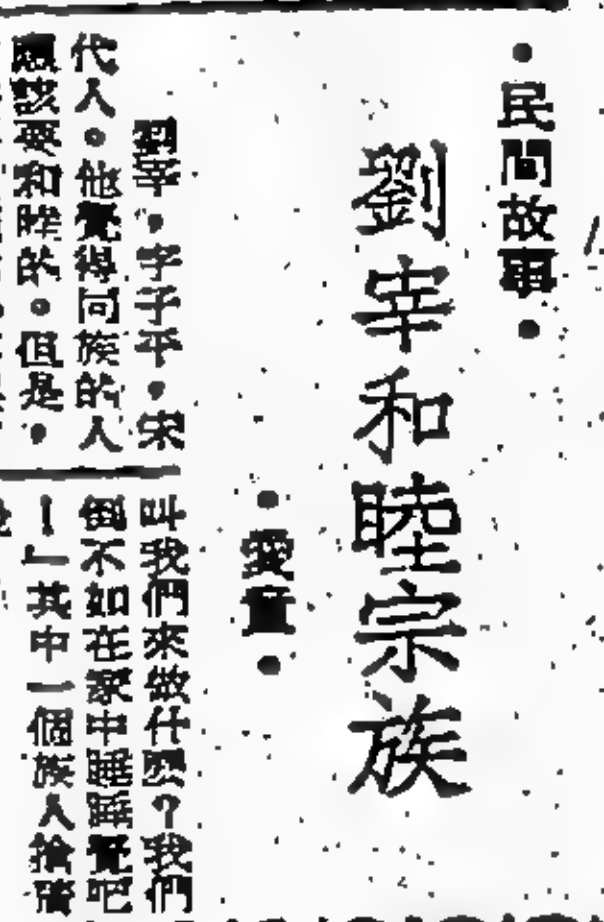 ·民間故事·
劉宰和睦宗族
·愛童·
劉宰，字子平，宋
代人。他覺得同族的人
應該要和睦的。但是，
叫我們來做什麼？我們
倒不如在家中睡睡覺吧
！」其中一個族人搶着